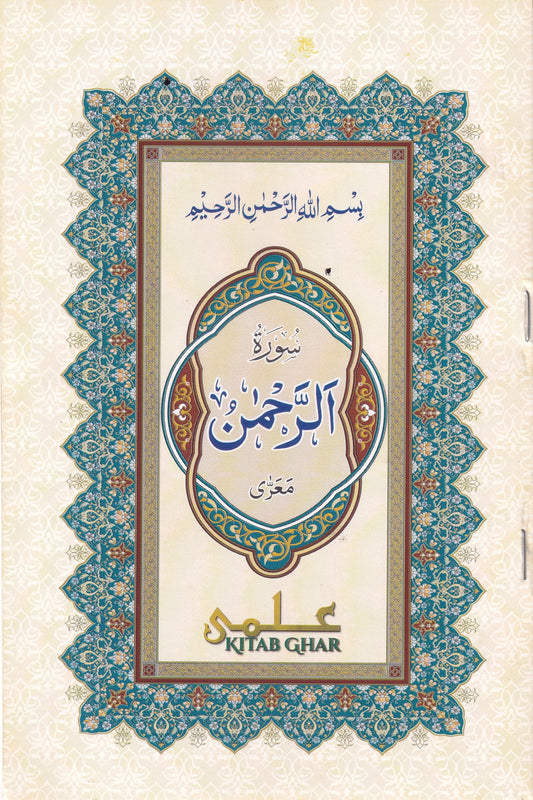 بِسْمِ اللهِ الرَّحْمٰنِ الرَّحِيْمِ
سُوْرَةُ
اَلرَّحْمٰنُ
مَعَرّٰی
علمی
KITAB GHAR